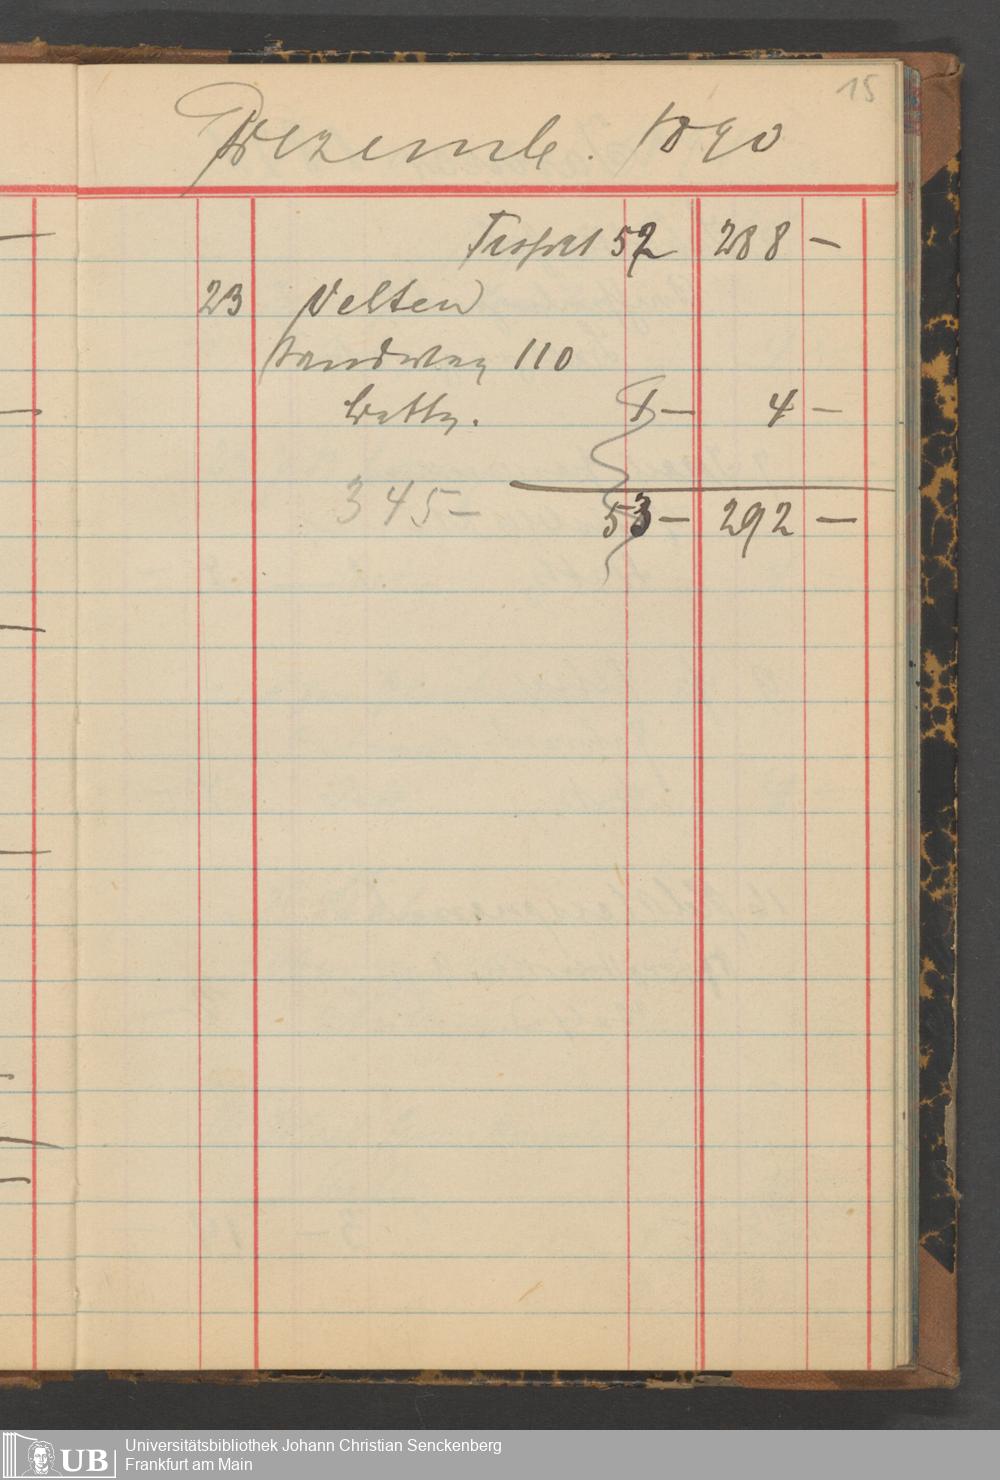 15
Dezemb. 1890
Trsport 52 288 –
23 Velten
Sandweg 110
Betty. 1 – 4 –
345 –
53 – 292 –
UB
Universitätsbibliothek Johann Christian Senckenberg
Frankfurt am Main